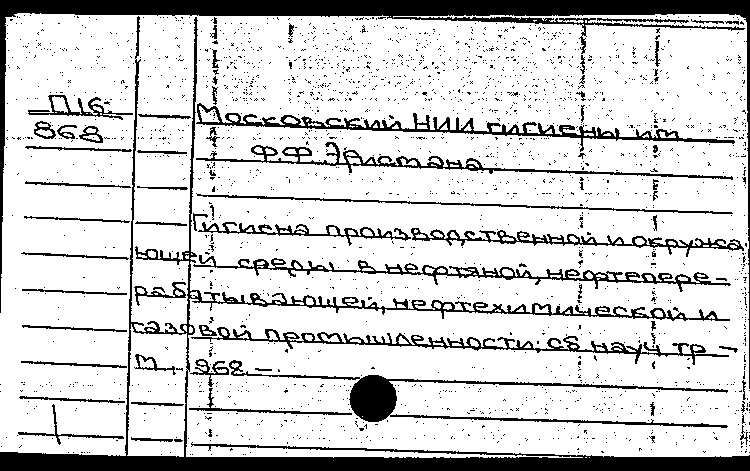 П16
868
Московский НИИ гигиены им.
Ф.Ф. Эрисмана.
Гигиена производственной и окружа
ющей среды в нефтяной, нефтепере-
рабатывающей, нефтехимической и
газовой промышленности: сб. науч. тр. –
М., 1968. –